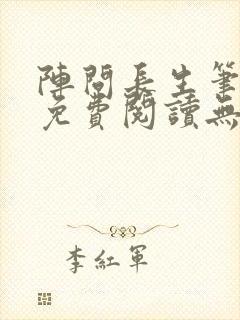 陣問長生筆
免費閱讀無
李紅軍